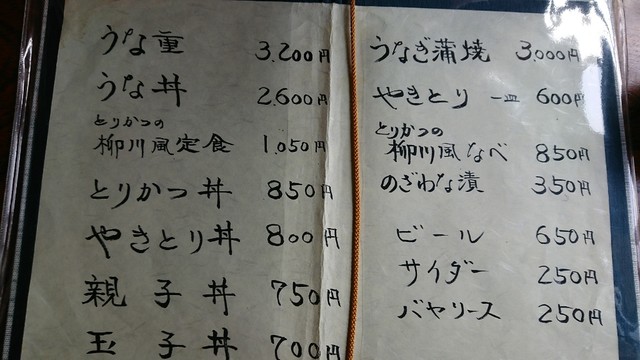 うな重 3.200円
うな丼 2.600円
とりかつの
柳川風定食 1.050円
とりかつ丼 850円
やきとり丼 800円
親子丼 750円
玉子丼 700円
うなぎ蒲焼 3.000円
やきとり 一皿 600円
とりかつの
柳川風なべ 850円
のざわな漬 350円
ビール 650円
サイダー 250円
バヤリース 250円